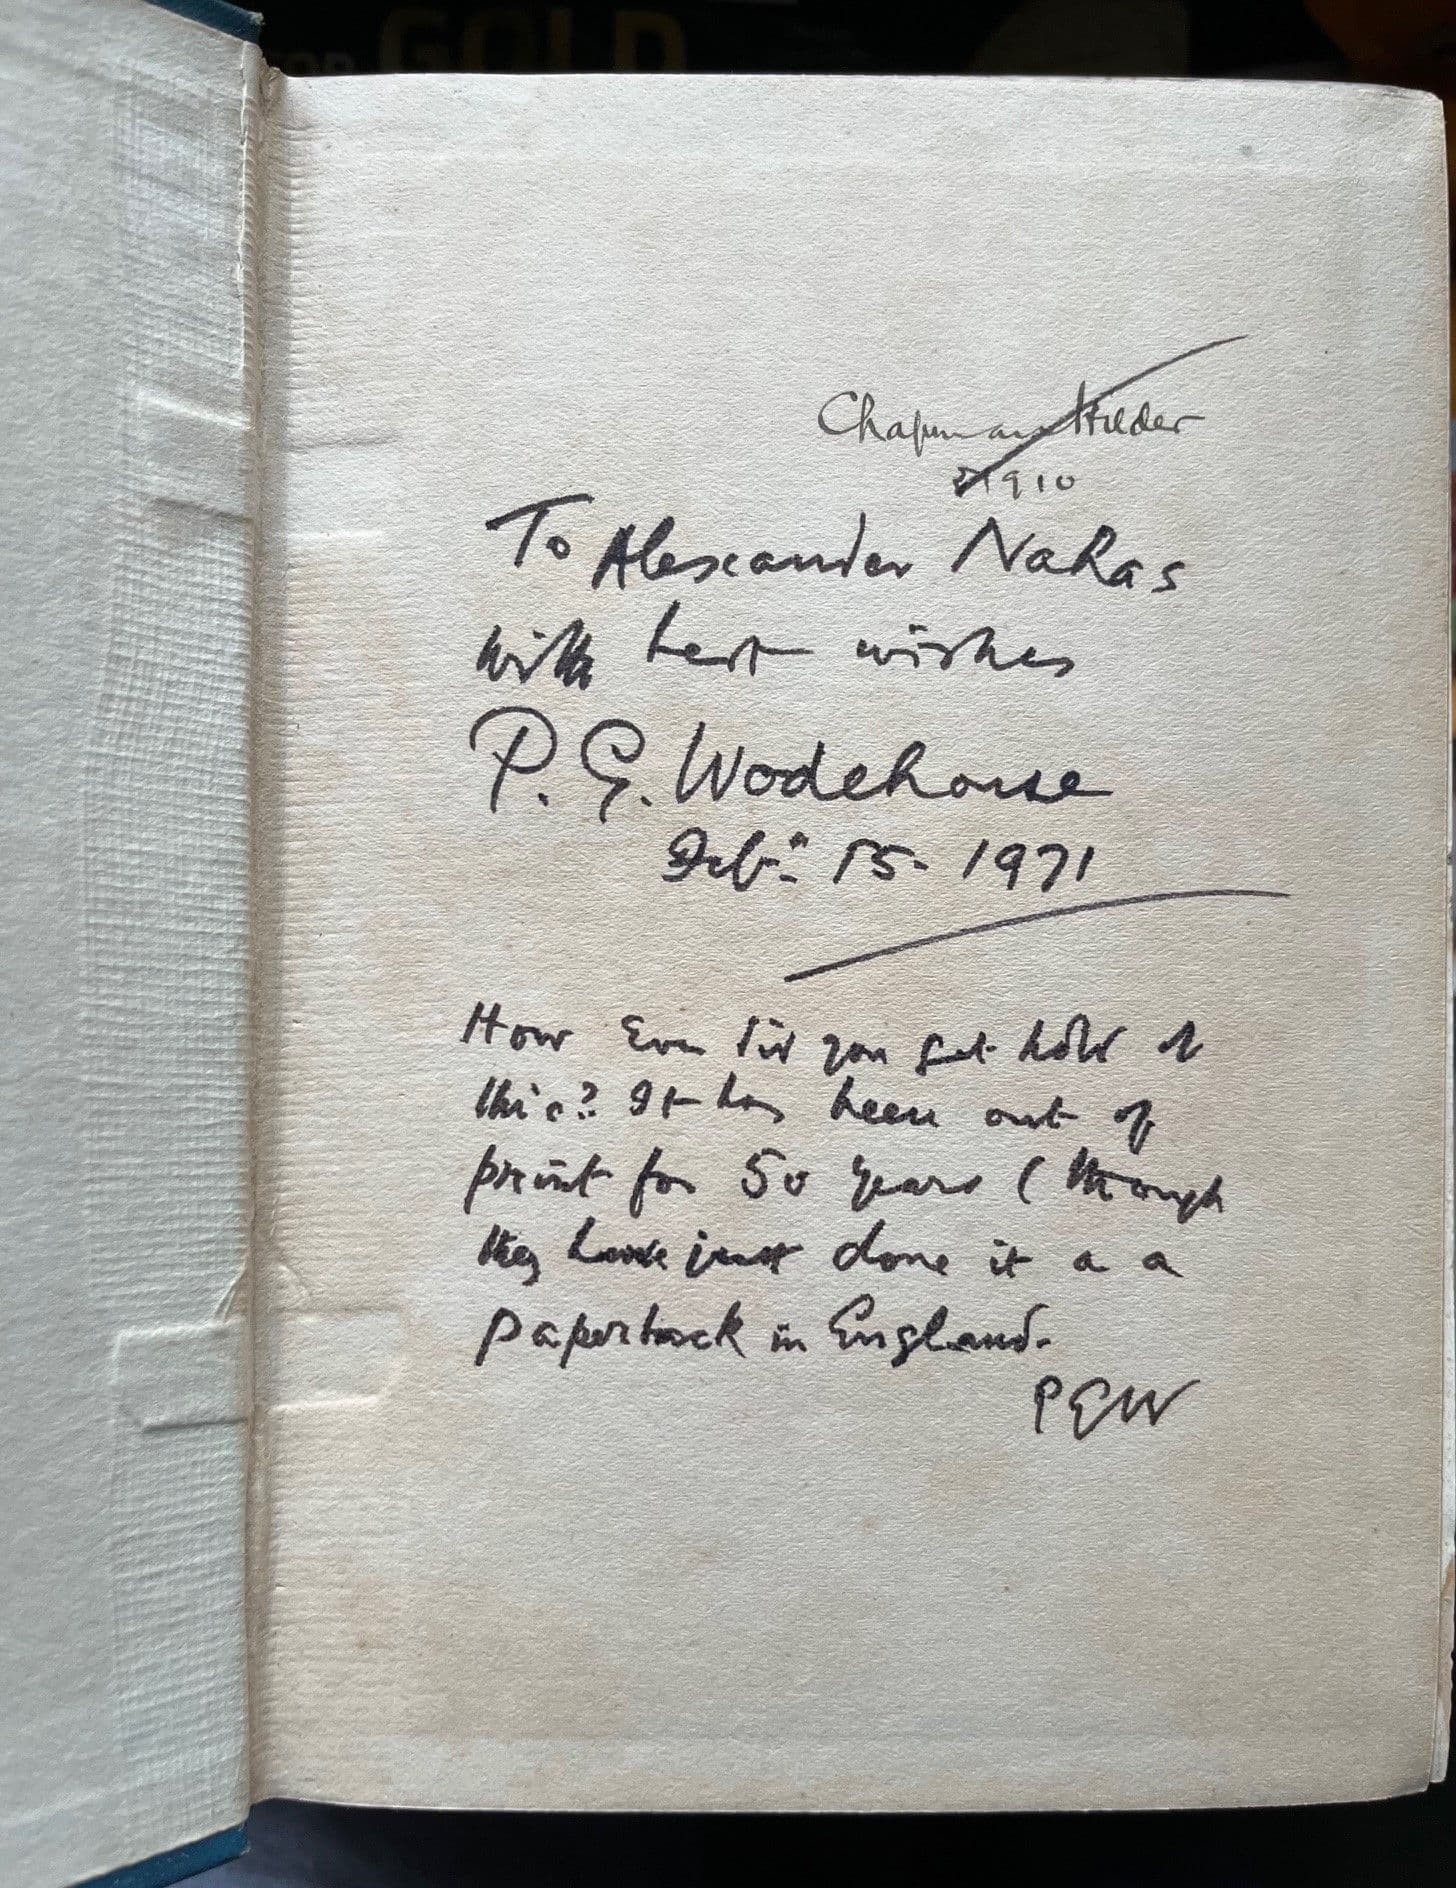 GOLD
Chapman Hilder
1910
To Alexander Nahas
with best wishes
P. G. Wodehouse
Feb. 15. 1971
How Ever did you get hold of
this? It has been out of
print for 50 years (though
they have just done it a a
paperback in England.
PGW